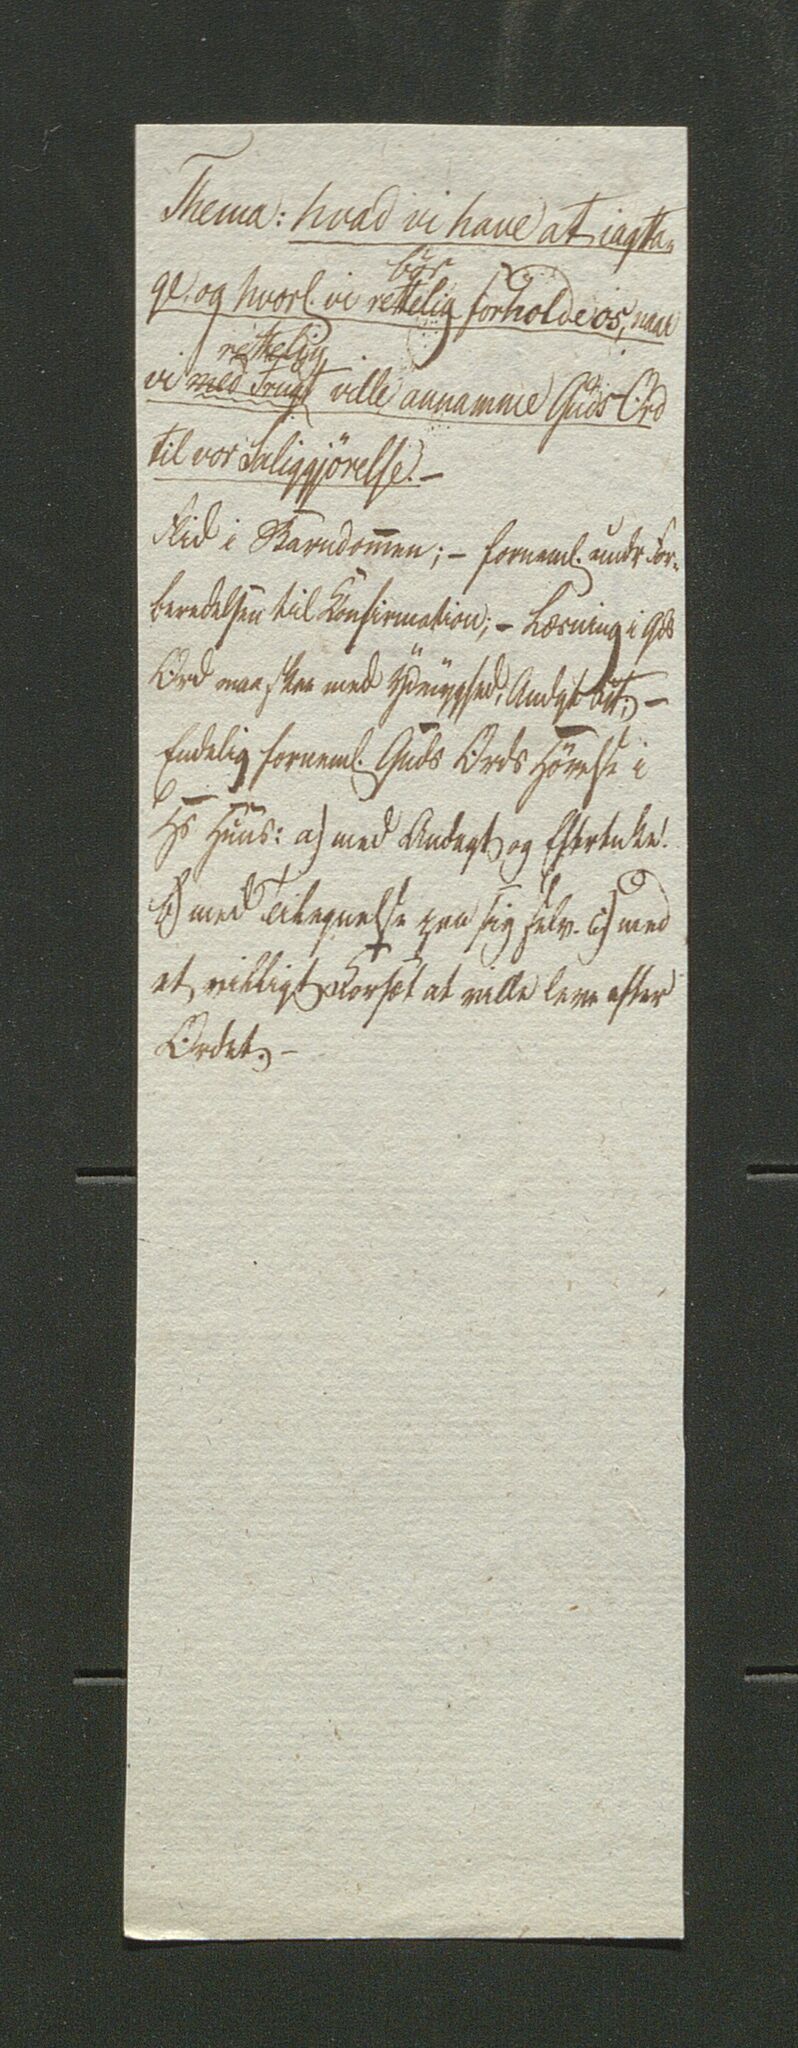 Thema: hvad vi have at iagtta-
bör
ge, og hvorl. vi rettelig forholde os, naar
rettelig
vi med Frugt ville annamme Guds Ord
til vor Saliggjörelse. –
Flid i Barndommen; – forneml. undr For-
beredelsen til Konfirmation; – Læsning i Gds
Ord maa skee med Ydmyghed, Andgt – 
Endelig forneml. Guds Ords Hörelse i
Hs Huus: a) med Andagt og Eftertnke.
b) med Tilegnelse paa sig selv. c) med
et villigt Forsæt at ville leve efter
Ordet. –